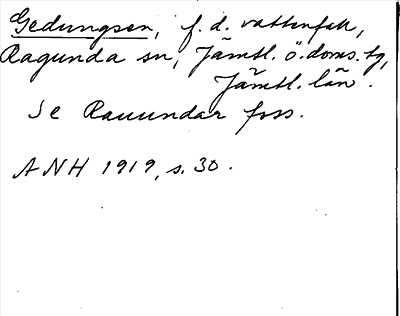 Gedungsen, f. d. vattenfall,
Ragunda sn, Jämtl. ö. doms. tg,
Jämtl. län.
Se Rauundar foss.
ANH 1919, s. 30.